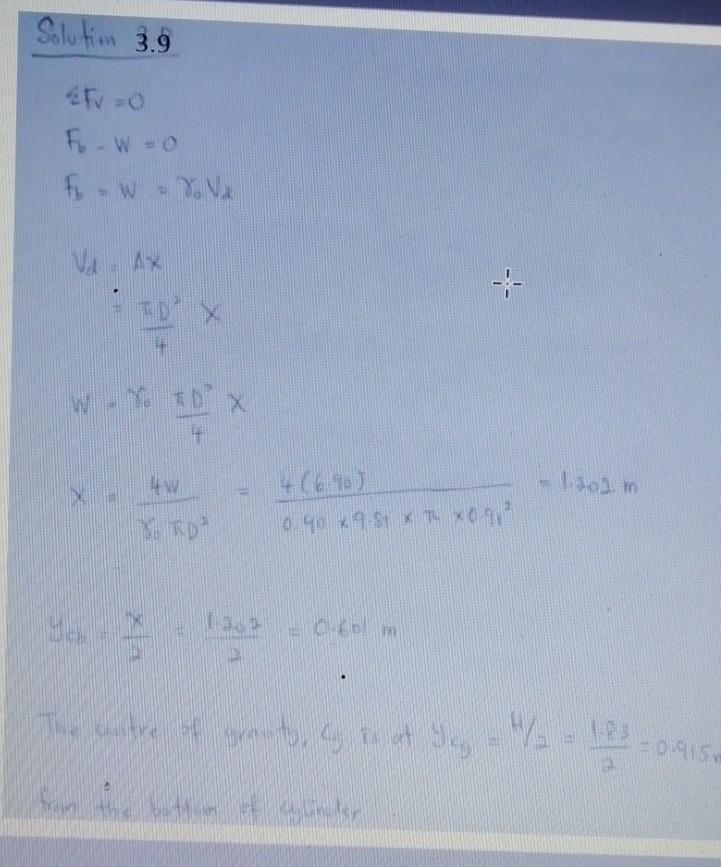 Solution 3.9
ΣFv = 0
Fb - W = 0
Fb = W = γo Vd
Vd = AX
= πD²/4 X
W = γo πD²/4 X
X = 4W/γo πD² = 4(6.90)/0.90 x 9.81 x π x 0.91² = 1.202 m
Ycb = X/2 = 1.202/2 = 0.601 m
The centre of gravity, Cg is at Ycg = H/2 = 1.83/2 = 0.915m
from the bottom of cylinder